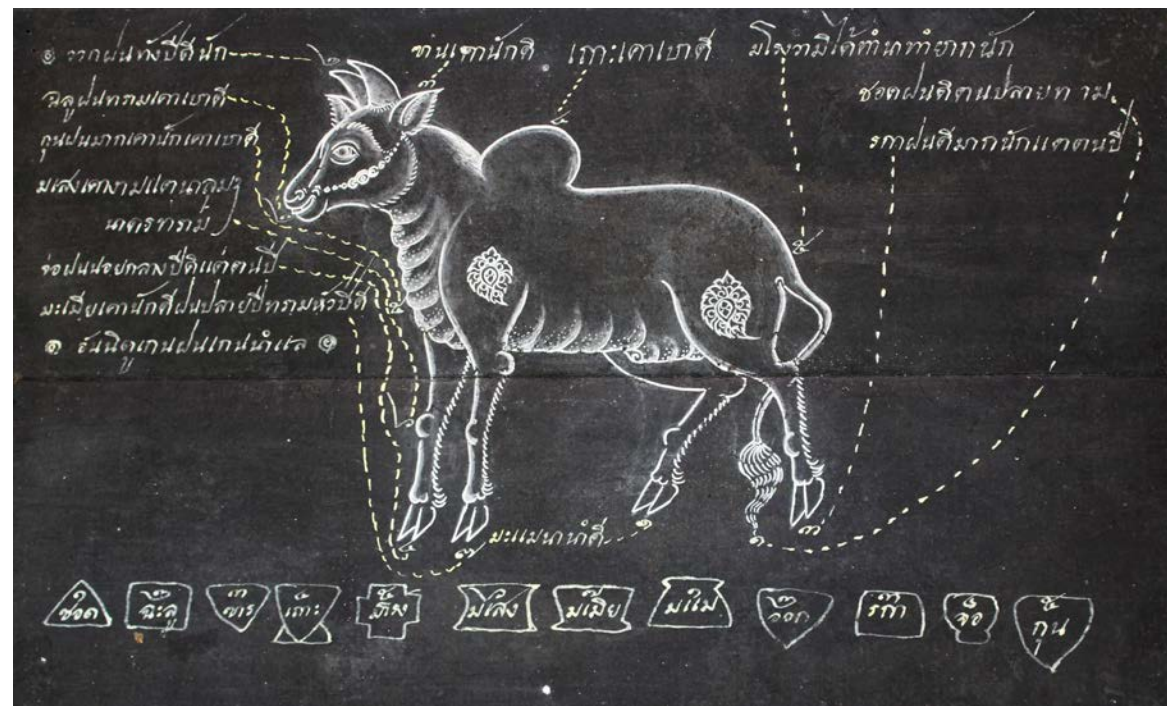 ๏ วอกฝนทังปีดีนัก
ฉลูฝนทรามเคาเบาดี
กุนฝนมากเคานักเคาเบาดี
มเสงเตงามแตนาลุมๆ
นาดรทราม
จอฝนนอยกลางปีดีแต่ต้นปี
มะเมียเคานักดีฝนปลายปีทรามหัวปีดี
๏ อันนิดูเกนฝนเกนนำแล ๏
ขานเคานักดี
เถาะเคาเบาดี
มโรงวามิได้ทำนาทำยากนัก
ชอดฝนดีตนปลายทราม
รกาฝนดีมากนักแตตนปี
มะแมนานำดี
ชอด
ฉะลู
ขาร
เถาะ
มโรง
มเสง
มเมีย
มแม
วอก
รกา
จอ
กุน